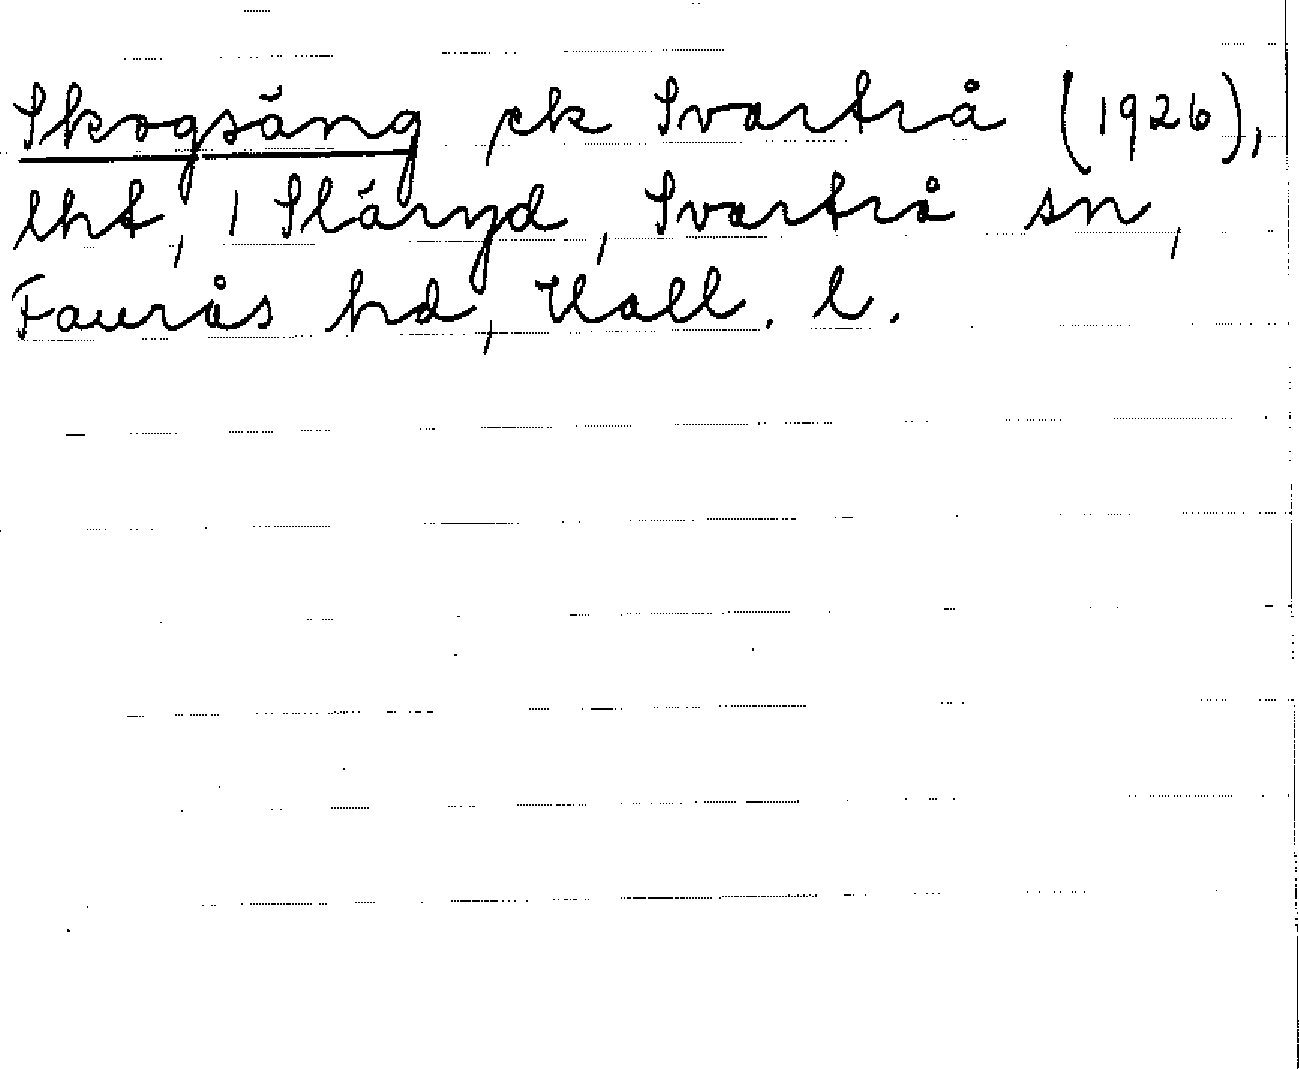 Skogsäng pk Svartrå (1926),
lht, 1 Släryd, Svartrå sn,
Faurås hd, Hall. l.